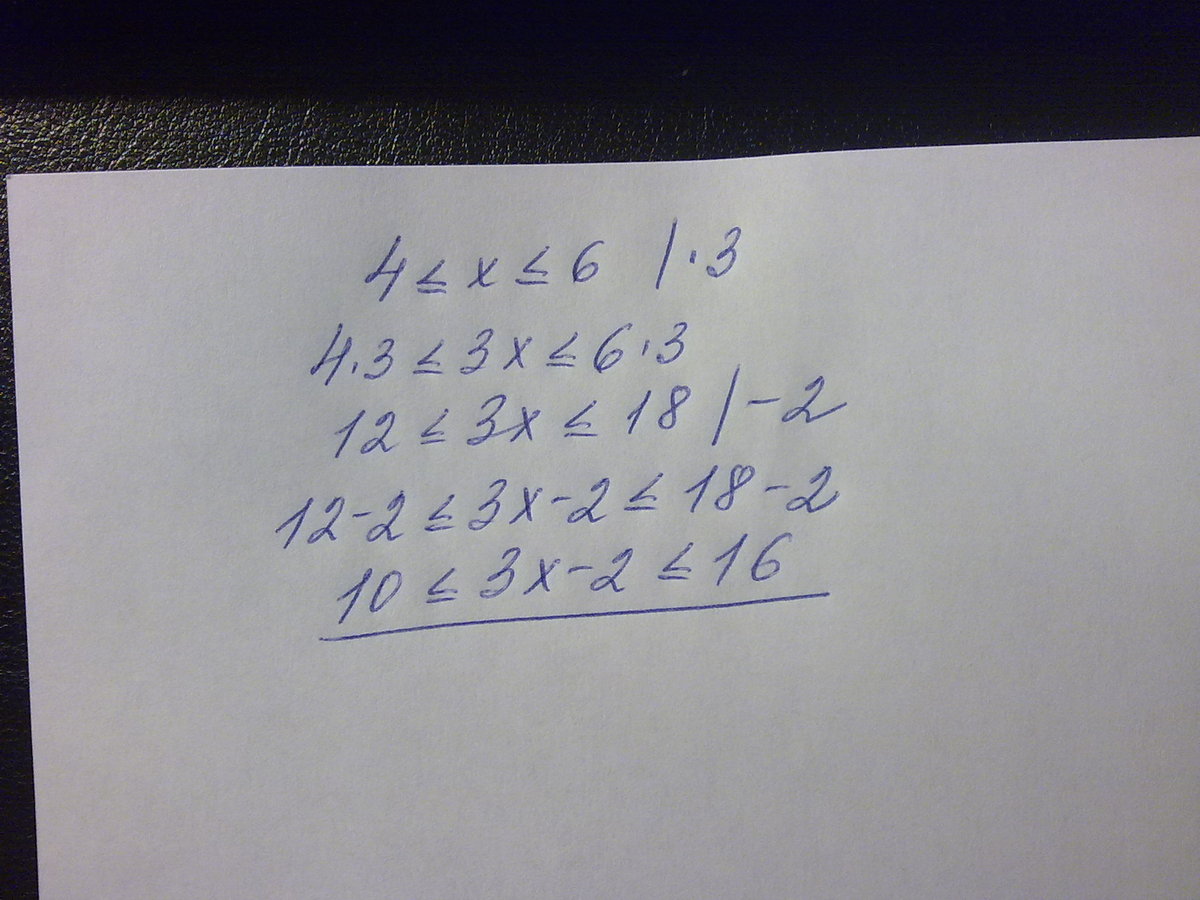 4 ≤ x ≤ 6 | · 3
4·3 ≤ 3x ≤ 6·3
12 ≤ 3x ≤ 18 | -2
12-2 ≤ 3x-2 ≤ 18-2
10 ≤ 3x-2 ≤ 16